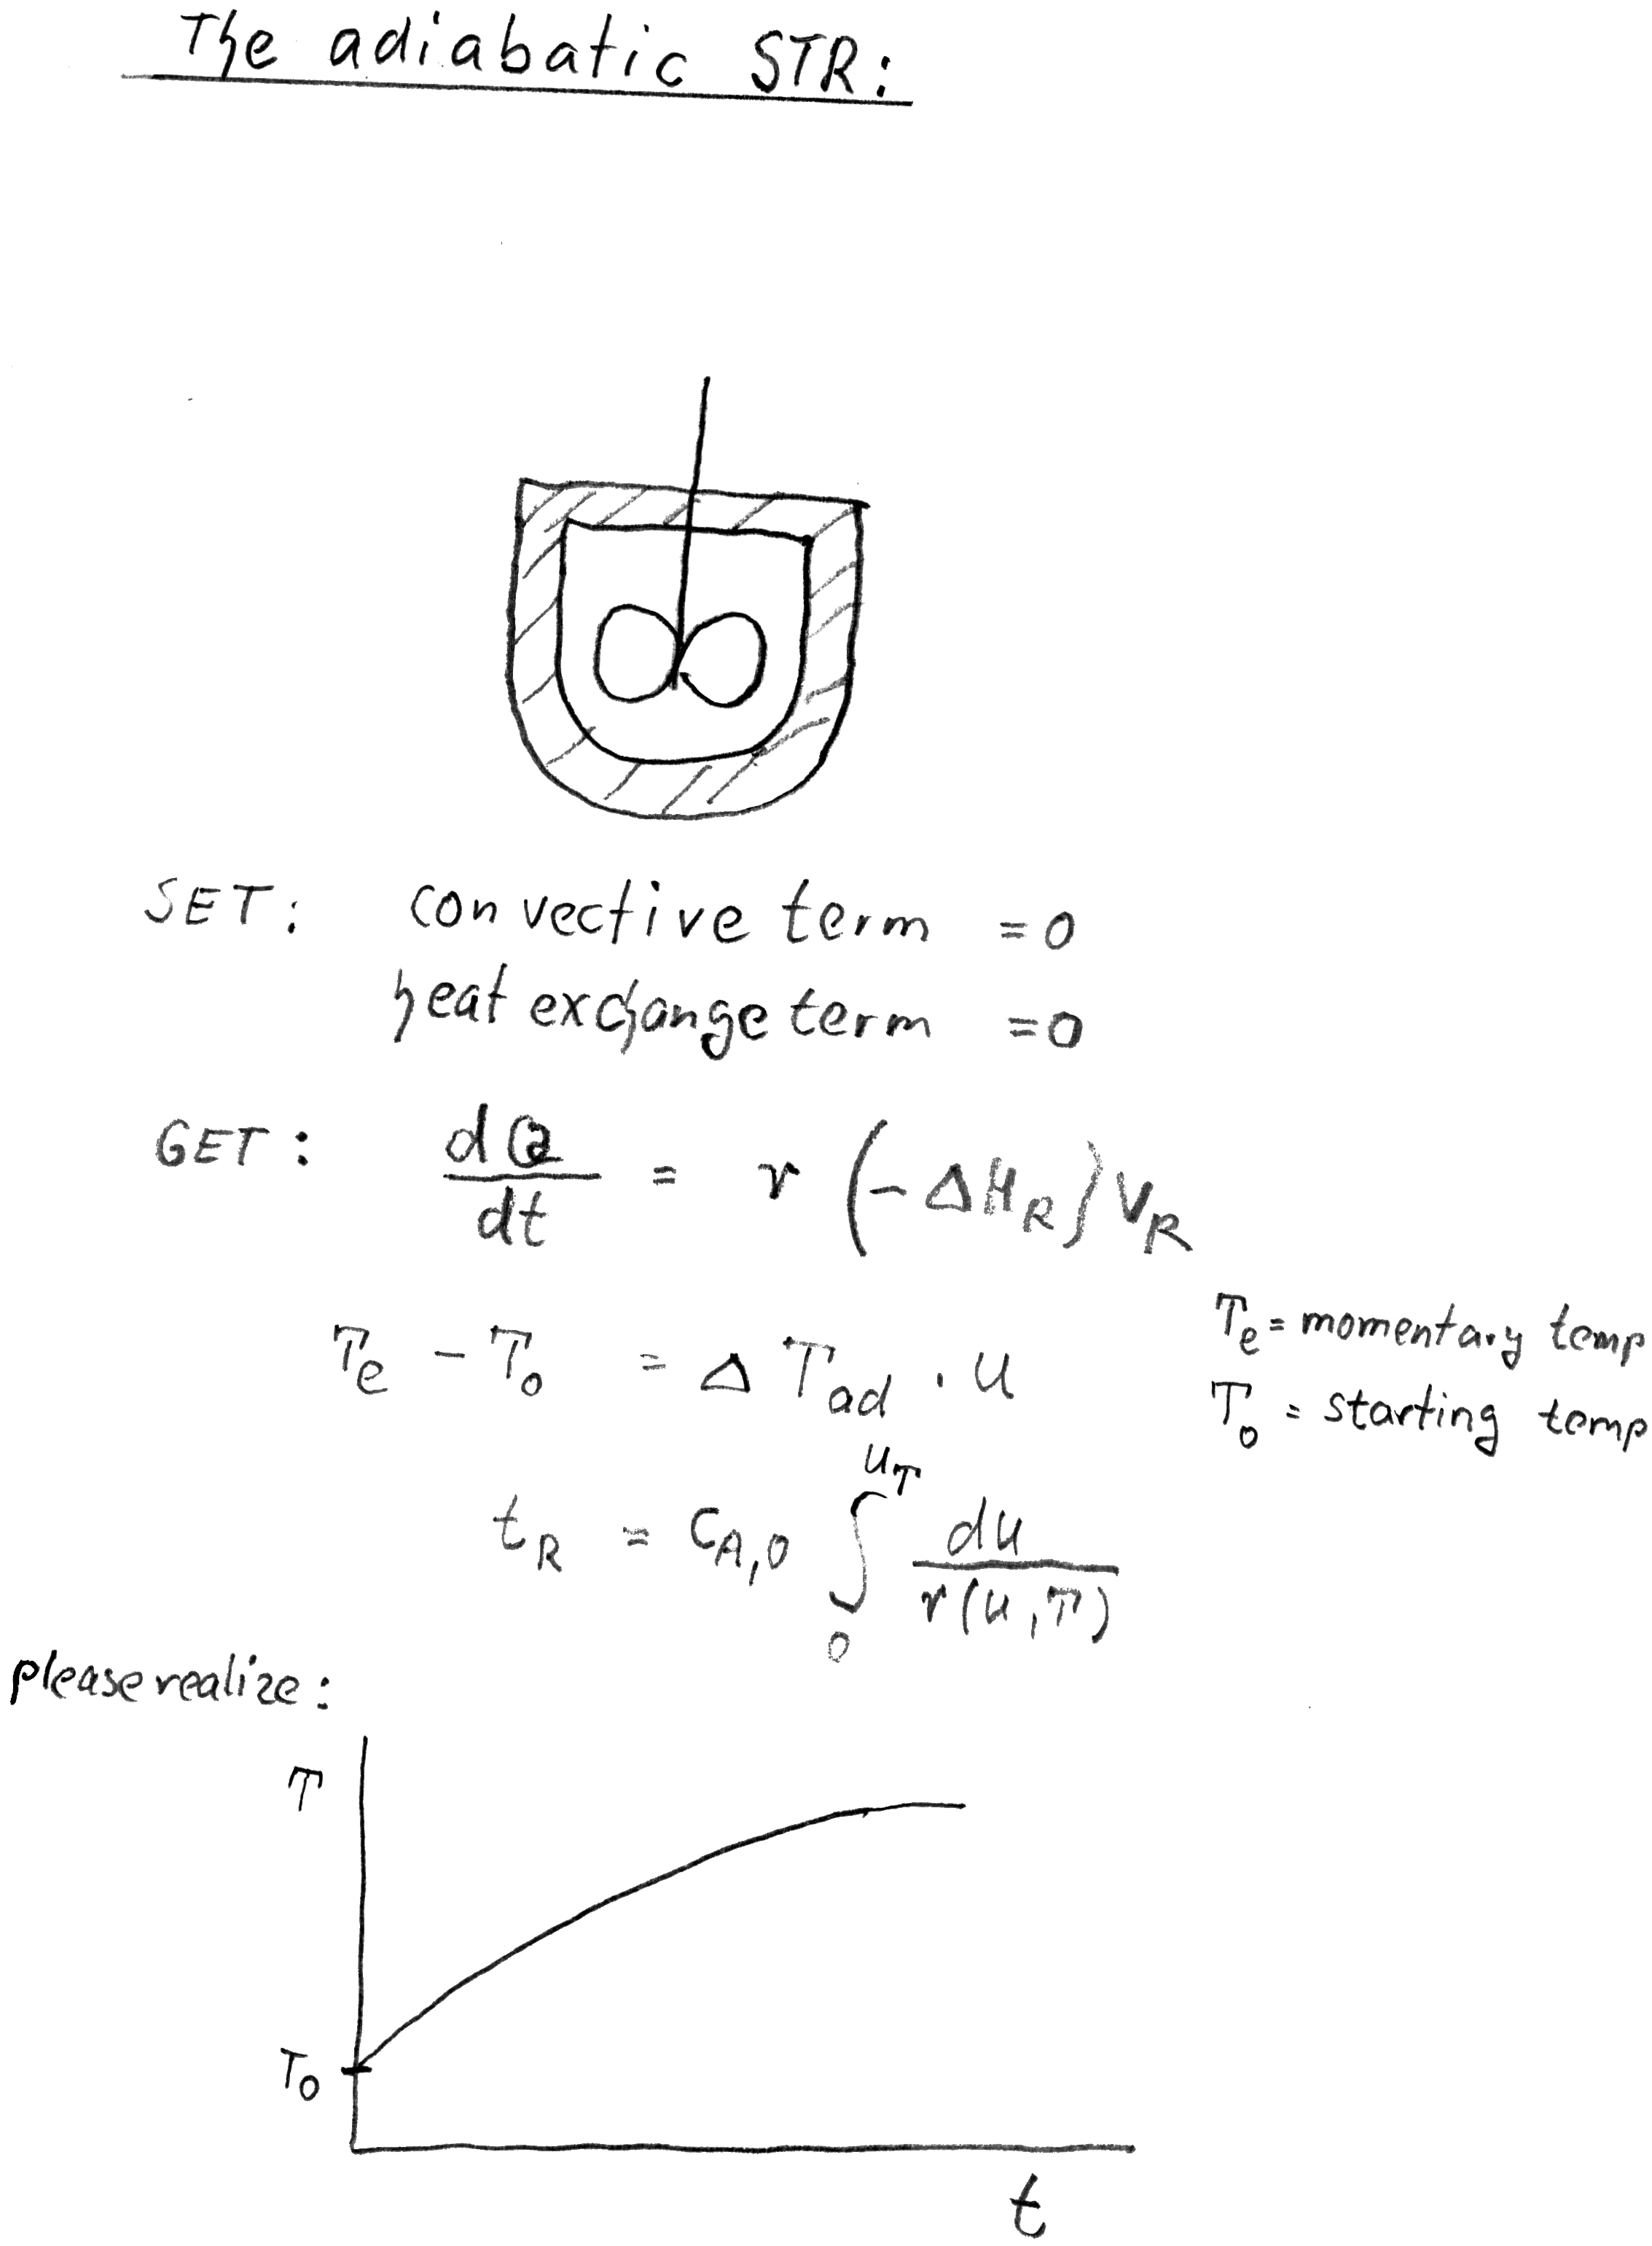 The adiabatic STR:
SET: convective term = 0
heat exchange term = 0
GET: dQ/dt = r (-ΔH_R) V_R
T_e - T_0 = ΔT_ad · U
T_e = momentary temp
T_0 = starting temp
t_R = C_A,0 ∫_0^U_T du / r(u,T)
please realize:
T
T_0
t